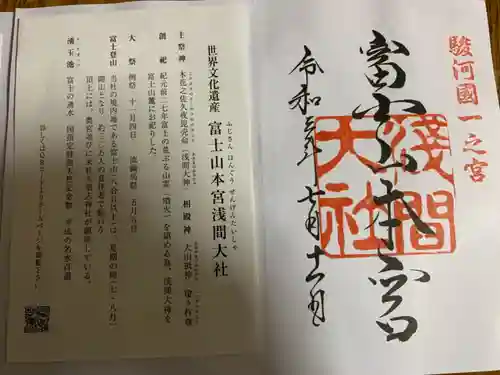 駿河國一之宮
富士山本宮
淺間大社
七月十一日
ふじさん ほんぐう せんげんたいしゃ
世界文化遺産 富士山本宮浅間大社
主祭神 木花之佐久夜毘売命(浅間大神) 相殿神 大山祇神 瓊々杵尊
創祀 紀元前二七年富士の荒ぶる山霊(噴火)を鎮める為、浅間大神を
富士山麓にお祀りした。
大祭 例祭 十一月四日 流鏑馬祭 五月五日
富士登山 当社の境内地である富士山(八合目以上)は、夏期の間(七・八月)
開山となり
頂上には、奥宮並びに末社久須志神社が鎮座している。
湧玉池 富士の湧水 国指定特別天然記念物 平成の名水百選
詳しくはQRコードよりホームページを御覧下さい